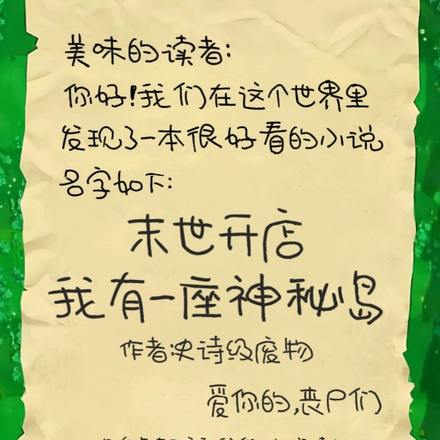 美味的读者:
你好!我们在这个世界里
发现了一本很好看的小说
名字如下:
末世开店
我有一座神秘岛
作者史诗级废物
爱你的,丧尸们